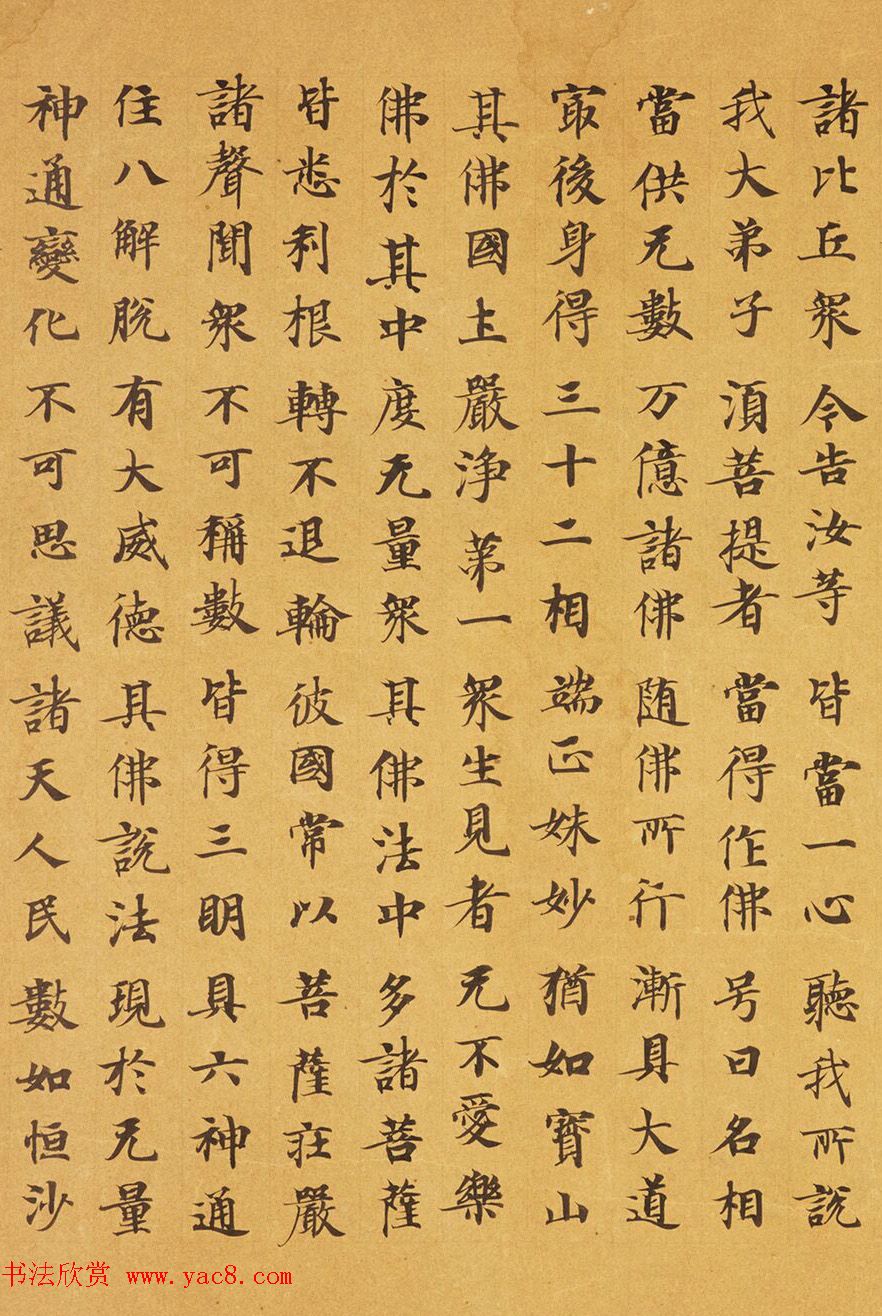 諸比丘眾 今告汝等 皆當一心 聽我所說
我大弟子 須菩提者 當得作佛 号曰名相
當供无數 万億諸佛 随佛所行 漸具大道
冣後身得 三十二相 端正姝妙 猶如寶山
其佛國土 嚴淨第一 眾生見者 无不愛樂
佛於其中 度无量眾 其佛法中 多諸菩薩
皆悉利根 轉不退輪 彼國常以 菩薩莊嚴
諸聲聞眾 不可稱數 皆得三明 具六神通
住八解脫 有大威德 其佛說法 現於无量
神通變化 不可思議 諸天人民 數如恒沙
书法欣赏 www.yac8.com